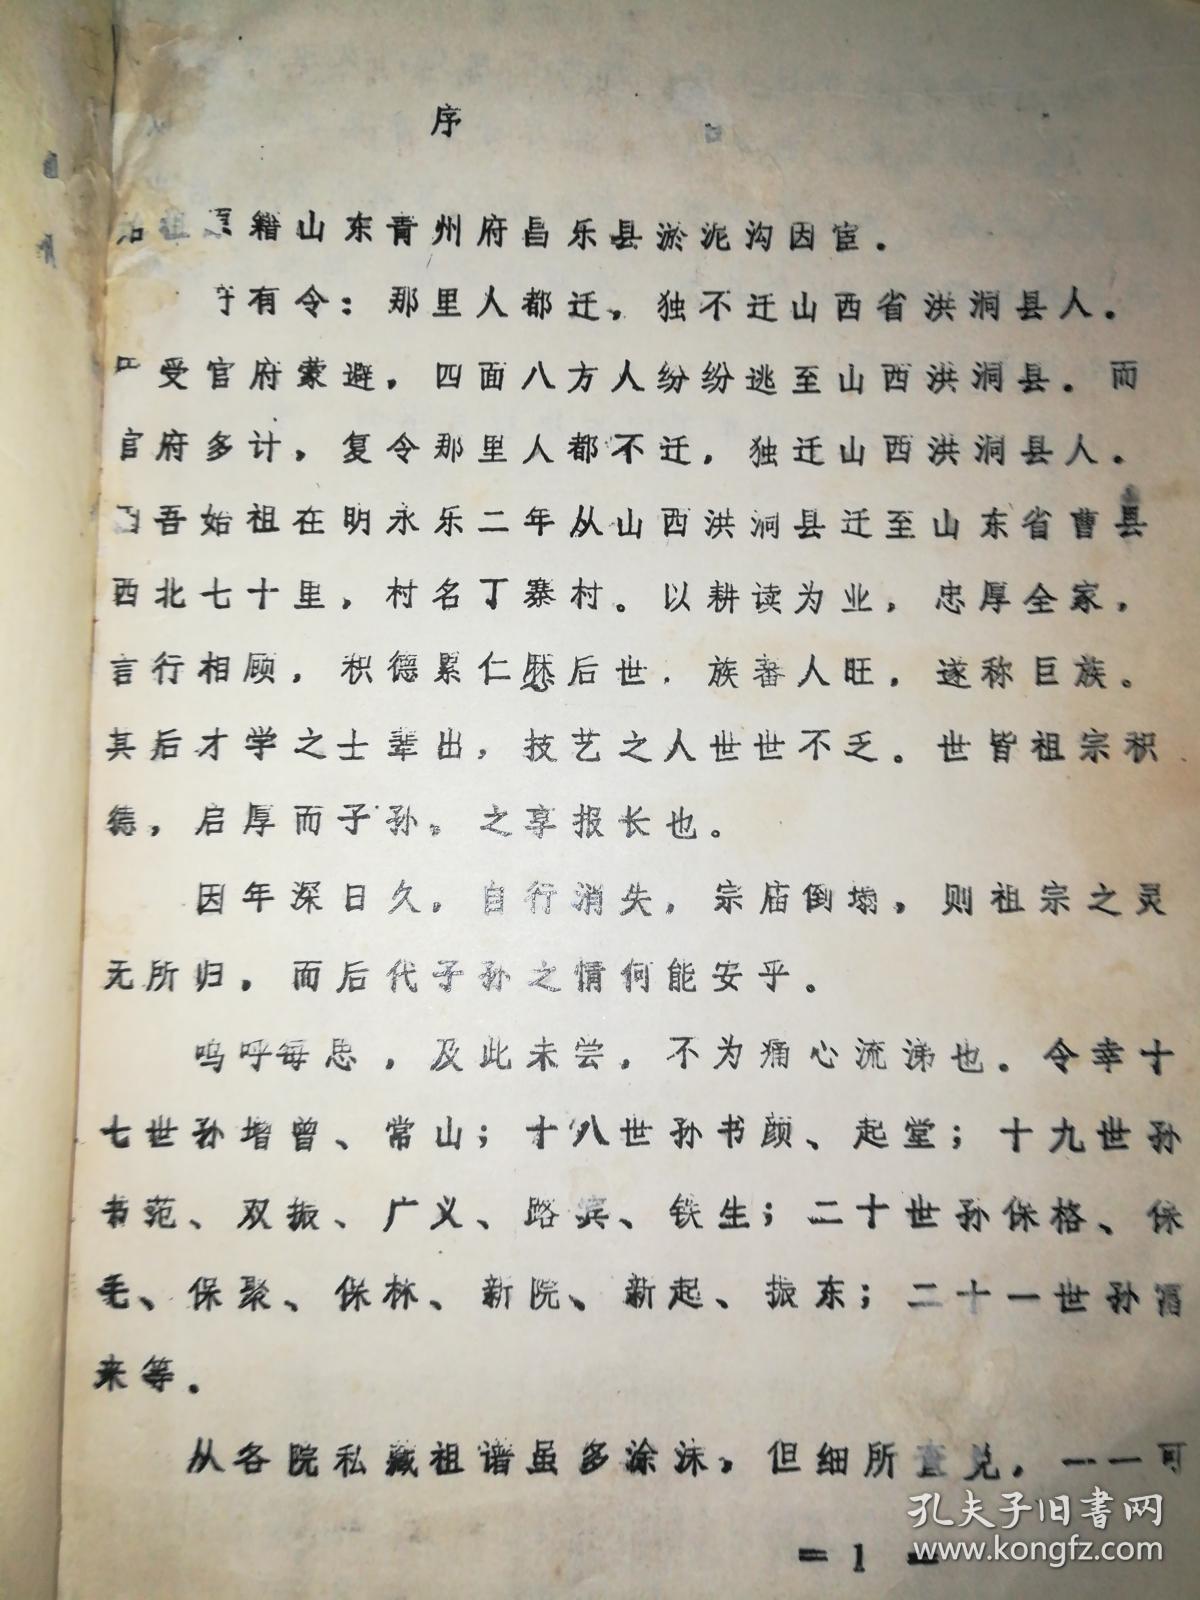 序
始祖原籍山东青州府昌乐县淤泥沟因宦.
有令：那里人都迁，独不迁山西省洪洞县人.
受官府蒙避，四面八方人纷纷逃至山西洪洞县.而
官府多计，复令那里人都不迁，独迁山西洪洞县人.
吾始祖在明永乐二年从山西洪洞县迁至山东省曹县
西北七十里，村名丁寨村。以耕读为业，忠厚全家，
言行相顾，积德累仁 后世.族蕃人旺，遂称巨族。
其后才学之士辈出，技艺之人世世不乏。世皆祖宗积
德，启厚而子孙。之享报长也。
因年深日久，自行消失，宗庙倒塌，则祖宗之灵
无所归，而后代子孙之情何能安乎。
呜呼每思，及此未尝，不为痛心流涕也.令幸十
七世孙增曾、常山；十八世孙书颜、起堂；十九世孙
书范、双振、广义、路宾、铁生；二十世孙保格、保
毛、保聚、保林、新院、新起、振东；二十一世孙
来等.
从各院私藏祖谱虽多涂沫，但细所查见，一一可
= 1 =
孔夫子旧书网
www.kongfz.com